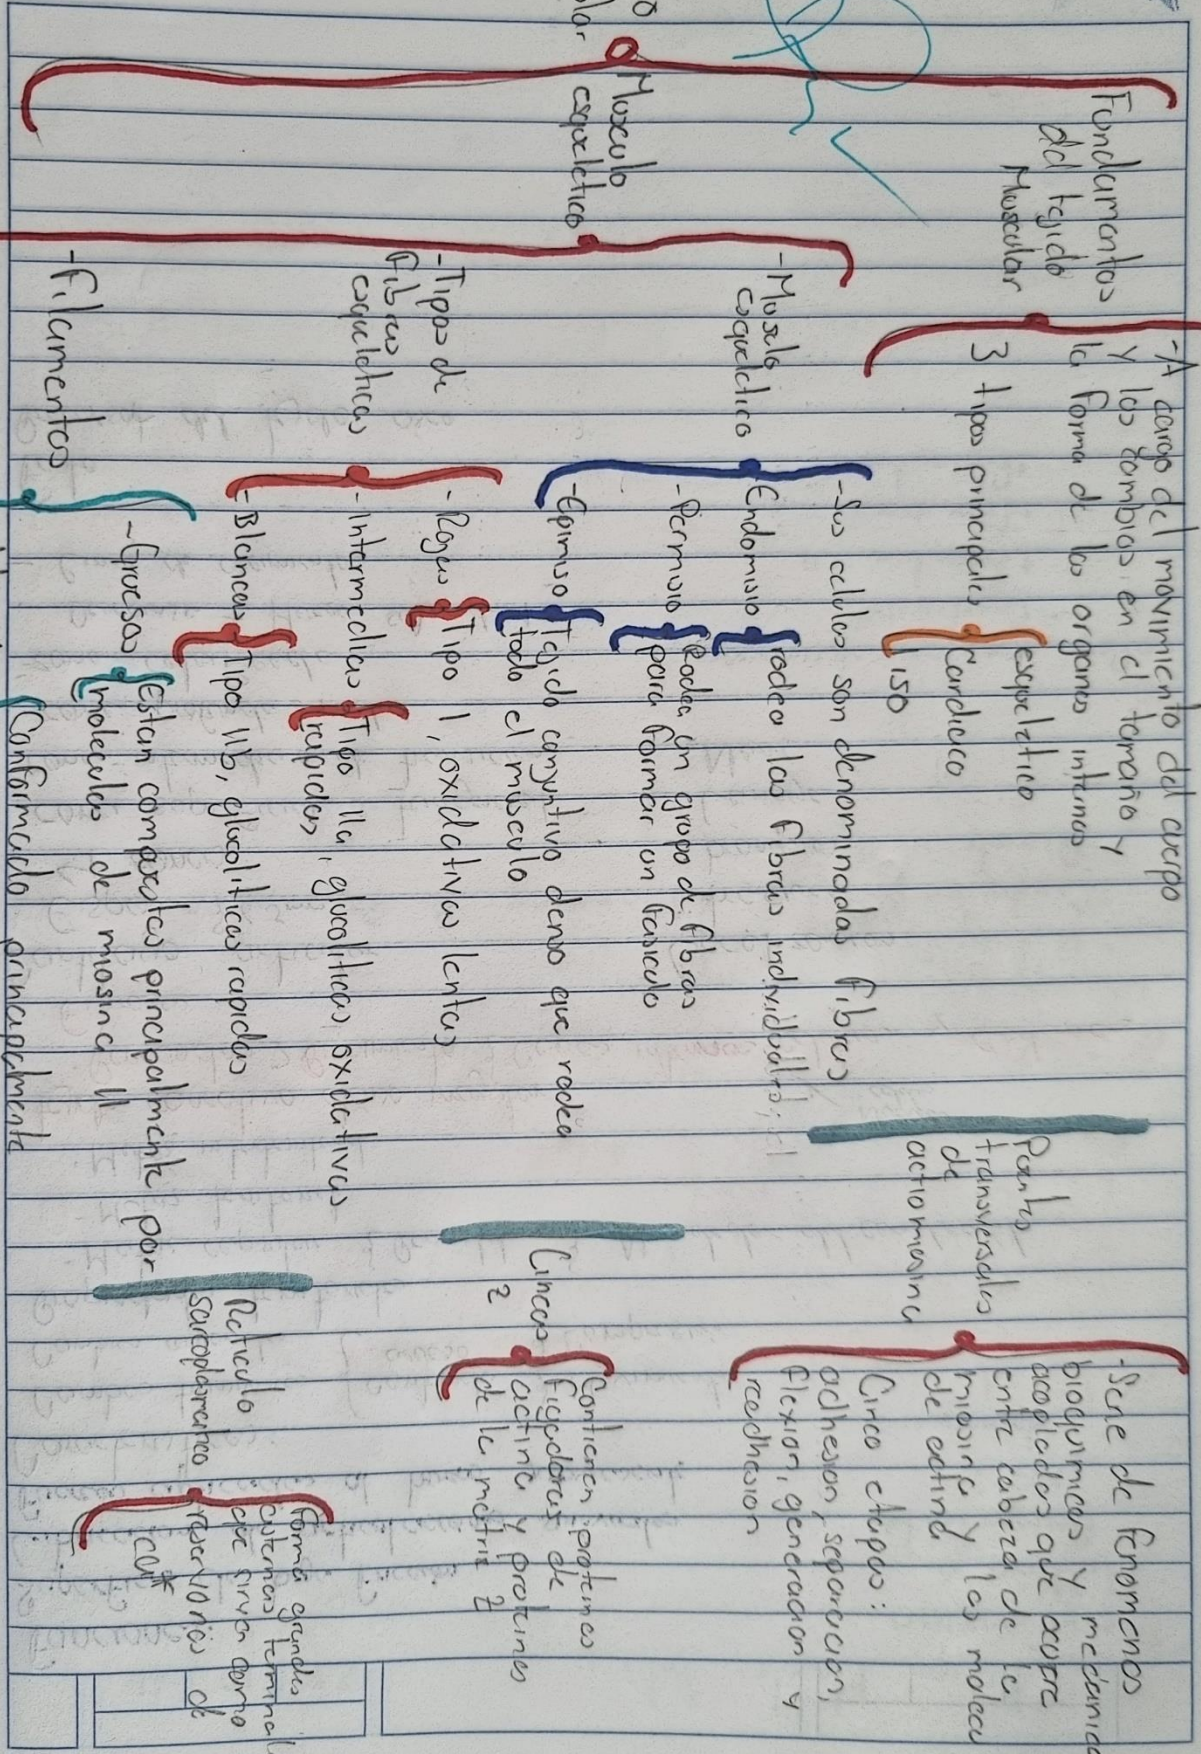 Fundamentos
del tejido
Muscular
-A cargo del movimiento del cuerpo
y los cambios en el tamaño y
la forma de los organos internos
3 tipos principales
esqueletico
Cardiaco
liso
Musculo
esqueletico
-Musculo
esqueletico
-Sus celulas son denominadas fibras
-Endomisio
rodea las fibras
-Perimisio
Rodea un grupo de fibras
para formar un fasiculo
-Epimisio
Tejido conjuntivo denso que rodea
todo el musculo
-Tipos de
fibras
esqueleticas
-Rojas
Tipo I, oxidativas lentas
-Intermedias
Tipo IIa, glucoliticas oxidativas
rapidas,
-Blancas
Tipo IIb, glucoliticas rapidas
-Filamentos
-Gruesos
Estan compuestos principalmente por
moleculas de miosina II
Conformado principalmente
transversales
de
actiomiosina
-Serie de fenomenos
bioquimicos y mecanico
acoplados que ocurre
entre cabeza de la
miosina y las molecu
de actina
Cinco etapas:
adhesion, separacion,
flexion, generacion y
readhesion
Lineas
Z
Contienen proteinas
fijadoras de
actina y proteinas
de la matriz Z
Reticulo
sarcoplasmatico
forma grandes
cisternas terminal
que sirven como
reservorios de